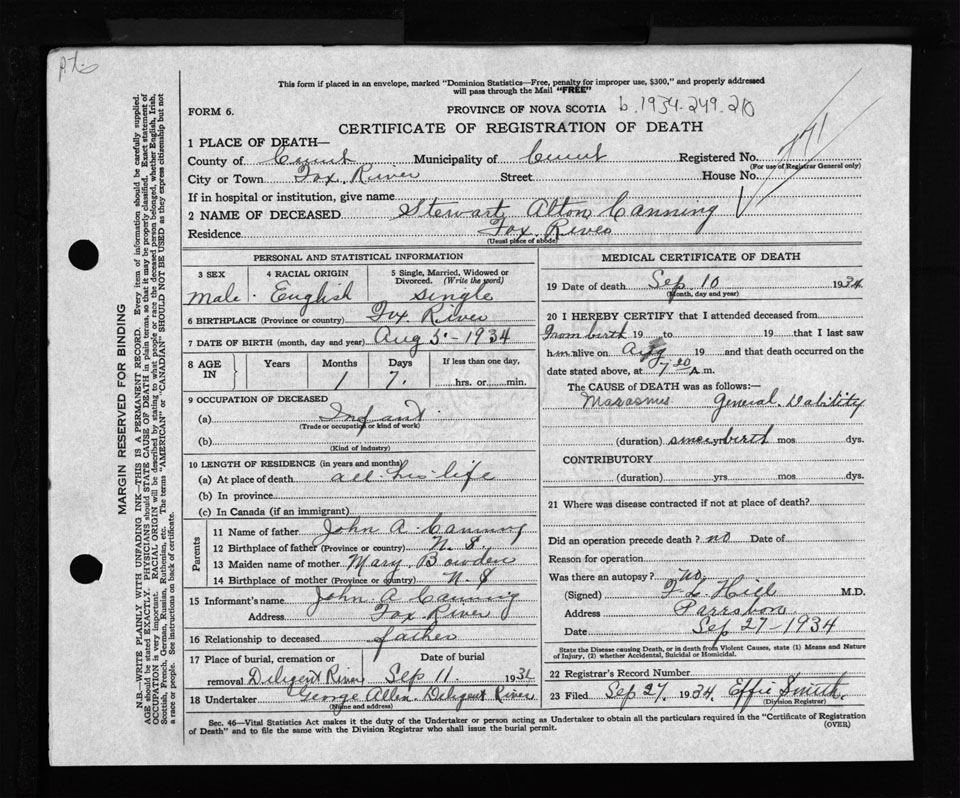 This form if placed in an envelope, marked "Dominion Statistics—Free, penalty for improper use, $300," and properly addressed
will pass through the Mail "FREE"
FORM 6.
PROVINCE OF NOVA SCOTIA b. 1934.249.210
CERTIFICATE OF REGISTRATION OF DEATH
1 PLACE OF DEATH—
County of Cumt Municipality of Cumt Registered No. 171
(For use of Registrar General only)
City or Town Fox River Street House No.
If in hospital or institution, give name
2 NAME OF DECEASED Stewart Alton Canning
Residence Fox River
(Usual place of abode)
PERSONAL AND STATISTICAL INFORMATION
3 SEX 4 RACIAL ORIGIN 5 Single, Married, Widowed or
Divorced. (Write the word)
Male. English Single
6 BIRTHPLACE (Province or country) Fox River
7 DATE OF BIRTH (month, day and year) Aug 5 - 1934
8 AGE IN Years Months Days If less than one day,
1 7. hrs. or min.
9 OCCUPATION OF DECEASED
(a) Infant
(Trade or occupation or kind of work)
(b)
(Kind of industry)
10 LENGTH OF RESIDENCE (in years and months)
(a) At place of death all his life
(b) In province
(c) In Canada (if an immigrant)
Parents
11 Name of father John A. Canning
12 Birthplace of father (Province or country) N. S
13 Maiden name of mother Mary Bowden
14 Birthplace of mother (Province or country) N. S
15 Informant's name John A Canning
Address Fox River
16 Relationship to deceased father
17 Place of burial, cremation or Date of burial
removal Diligent River Sep 11. 193
18 Undertaker George Allen Diligent River
(Name and address)
MEDICAL CERTIFICATE OF DEATH
19 Date of death Sep 10 1934
(Month, day and year)
20 I HEREBY CERTIFY that I attended deceased from
From birth 19 to 19 that I last saw
him alive on Aug 19 and that death occurred on the
date stated above, at 7 20 A.m.
The CAUSE OF DEATH was as follows:—
Marasmus General Dability
(duration) since yrs birth mos dys.
CONTRIBUTORY
(duration) yrs mos dys.
21 Where was disease contracted if not at place of death?
Did an operation precede death? no Date of
Reason for operation
Was there an autopsy? no
(Signed) Hill M.D.
Address Parrsboro
Date Sep 27 - 1934
State the Disease causing Death, or in death from Violent Causes, state (1) Means and Nature
of Injury, (2) whether Accidental, Suicidal or Homicidal.
22 Registrar's Record Number
23 Filed Sep 27. 1934. Effie Smith.
(Division Registrar)
Sec. 46—Vital Statistics Act makes it the duty of the Undertaker or person acting as Undertaker to obtain all the particulars required in the "Certificate of Registration
of Death" and to file the same with the Division Registrar who shall issue the burial permit.
(OVER)
MARGIN RESERVED FOR BINDING
N.B.—WRITE PLAINLY WITH UNFADING INK—THIS IS A PERMANENT RECORD. Every item of information should be carefully supplied.
AGE should be stated EXACTLY. PHYSICIANS should STATE CAUSE OF DEATH in plain terms, so that it may be properly classified. Exact statement of
OCCUPATION is very important. RACIAL ORIGIN will be described by stating to what people or race the deceased person belonged, whether English, Irish,
Scottish, French, German, Russian, Ruthenian, etc. The terms "AMERICAN" or "CANADIAN" SHOULD NOT BE USED as they express citizenship but not
a race or people. See instructions on back of certificate.